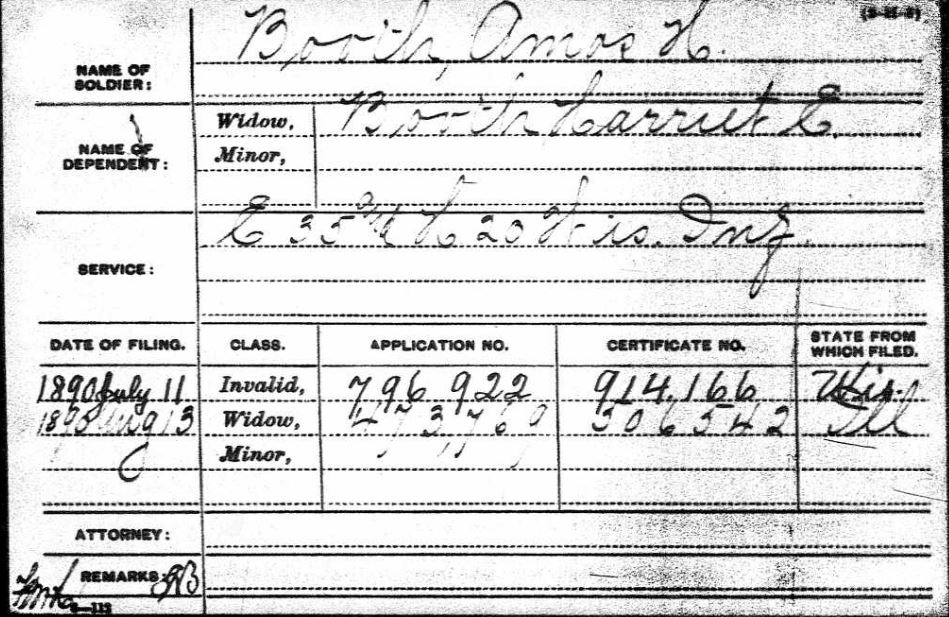 (3-H-6)
NAME OF SOLDIER: Booth, Amos H.
NAME OF DEPENDENT: Widow, Booth Harriet E.
Minor,
SERVICE: E 35 & H 20 Wis. Inf.
DATE OF FILING. CLASS. APPLICATION NO. CERTIFICATE NO. STATE FROM WHICH FILED.
1890 July 11 Invalid, 796 922 914.166 Wis.
1890 Aug 13 Widow, 473,769 306542 Ill
Minor,
ATTORNEY:
REMARKS: